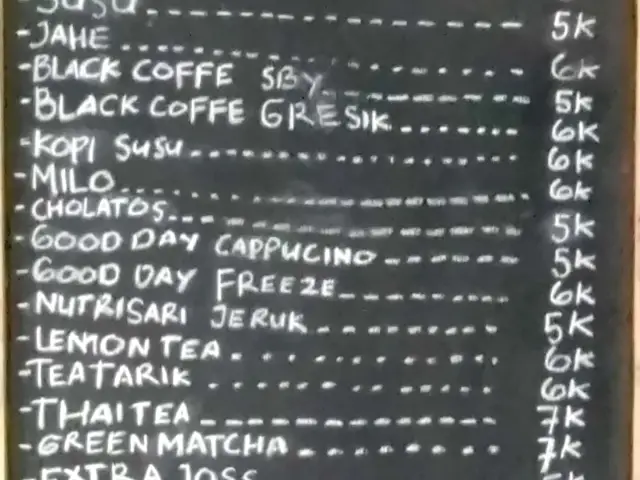 -SUSU 5K
-JAHE 6K
-BLACK COFFE SBY 5K
-BLACK COFFE GRESIK 6K
-KOPI SUSU 6K
-MILO 6K
-CHOLATOS 5K
-GOOD DAY CAPPUCINO 5K
-GOOD DAY FREEZE 6K
-NUTRISARI JERUK 5K
-LEMON TEA 6K
-TEATARIK 6K
-THAITEA 7K
-GREEN MATCHA 7K
-EXTRA JOSS 5K